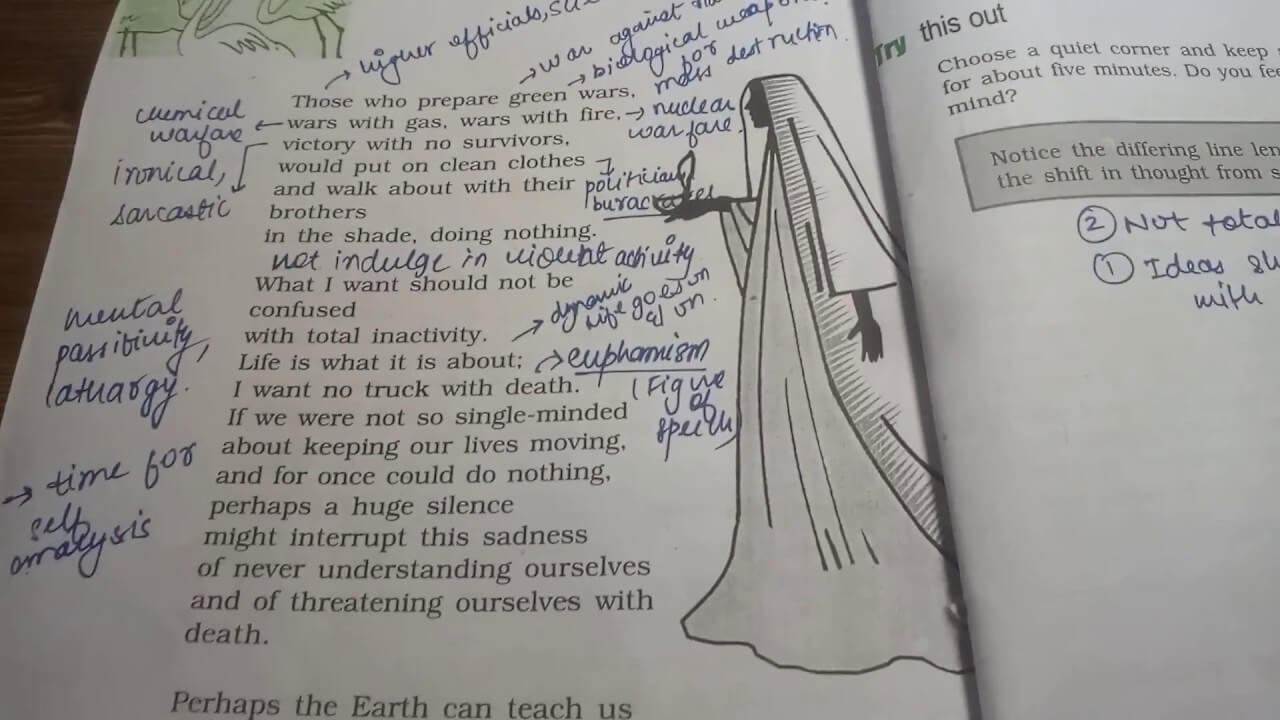 → higher officials,
→ war against
→ biological weapons
for
mass destruction.
Those who prepare green wars,
wars with gas, wars with fire,
→ nuclear
warfare.
chemical
warfare ←
victory with no survivors,
ironical,
sarcastic
would put on clean clothes
and walk about with their
brothers
politician
in the shade, doing nothing.
not indulge in violent activity
What I want should not be
confused
with total inactivity.
→ dynamic
life goes on
& on.
mental
passitivity,
Life is what it is about;
→ euphamism
(Figure
of
speech)
I want no truck with death.
If we were not so single-minded
about keeping our lives moving,
→ time for
self
analysis
and for once could do nothing,
perhaps a huge silence
might interrupt this sadness
of never understanding ourselves
and of threatening ourselves with
death.
Perhaps the Earth can teach us
Try this out
Choose a quiet corner and keep
for about five minutes. Do you
mind?
Notice the differing line
the shift in thought from
② Not total
① Ideas
with